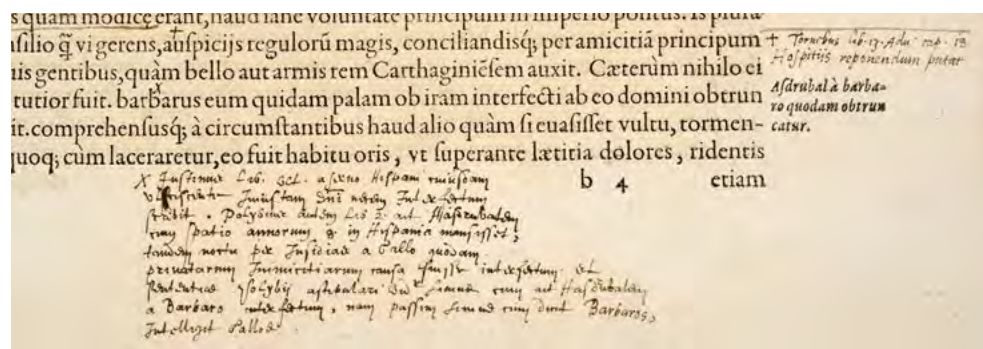 s quam modice erant, haud sane voluntate principum in imperio positus. Is plura
ſilio q̃ vi gerens, auſpicijs regulorũ magis, conciliandisq́; per amicitiã principum
uis gentibus, quàm bello aut armis rem Carthaginiẽſem auxit. Cæterùm nihilo ei
tutior fuit. barbarus eum quidam palam ob iram interfecti ab eo domini obtrun
it. comprehenſusq́; à circumſtantibus haud alio quàm ſi euaſiſſet vultu, tormen-
quoq; cùm laceraretur, eo fuit habitu oris, vt ſuperante lætitia dolores, ridentis
b 4 etiam
+ Turnebus lib. 13. Adu. cap. 18
Hoſpitiis reponendum putat
Aſdrubal à barba-
ro quodam obtrun
catur.
X Iustinus Lib. 44. a seruo Hispani cuiusdam
iniustam Dñi necem interfectum
scribit. Polybius autem Lib 2. ait Hasdrubalem
cum spatio annorum 8 in Hispania mansisset,
tandem noctu per insidias a Gallo quodam
privatarum inimicitiarum causa fuisse interfectum. et
sententiae Polybij Liuius cum ait Hasdrubalem
a Barbaro interfectum, nam passim Liuius cum dicit Barbaros,
intelligit Gallos.